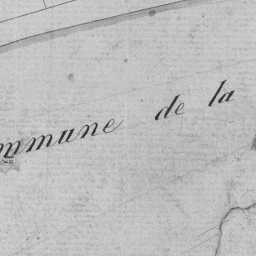 mmune de la